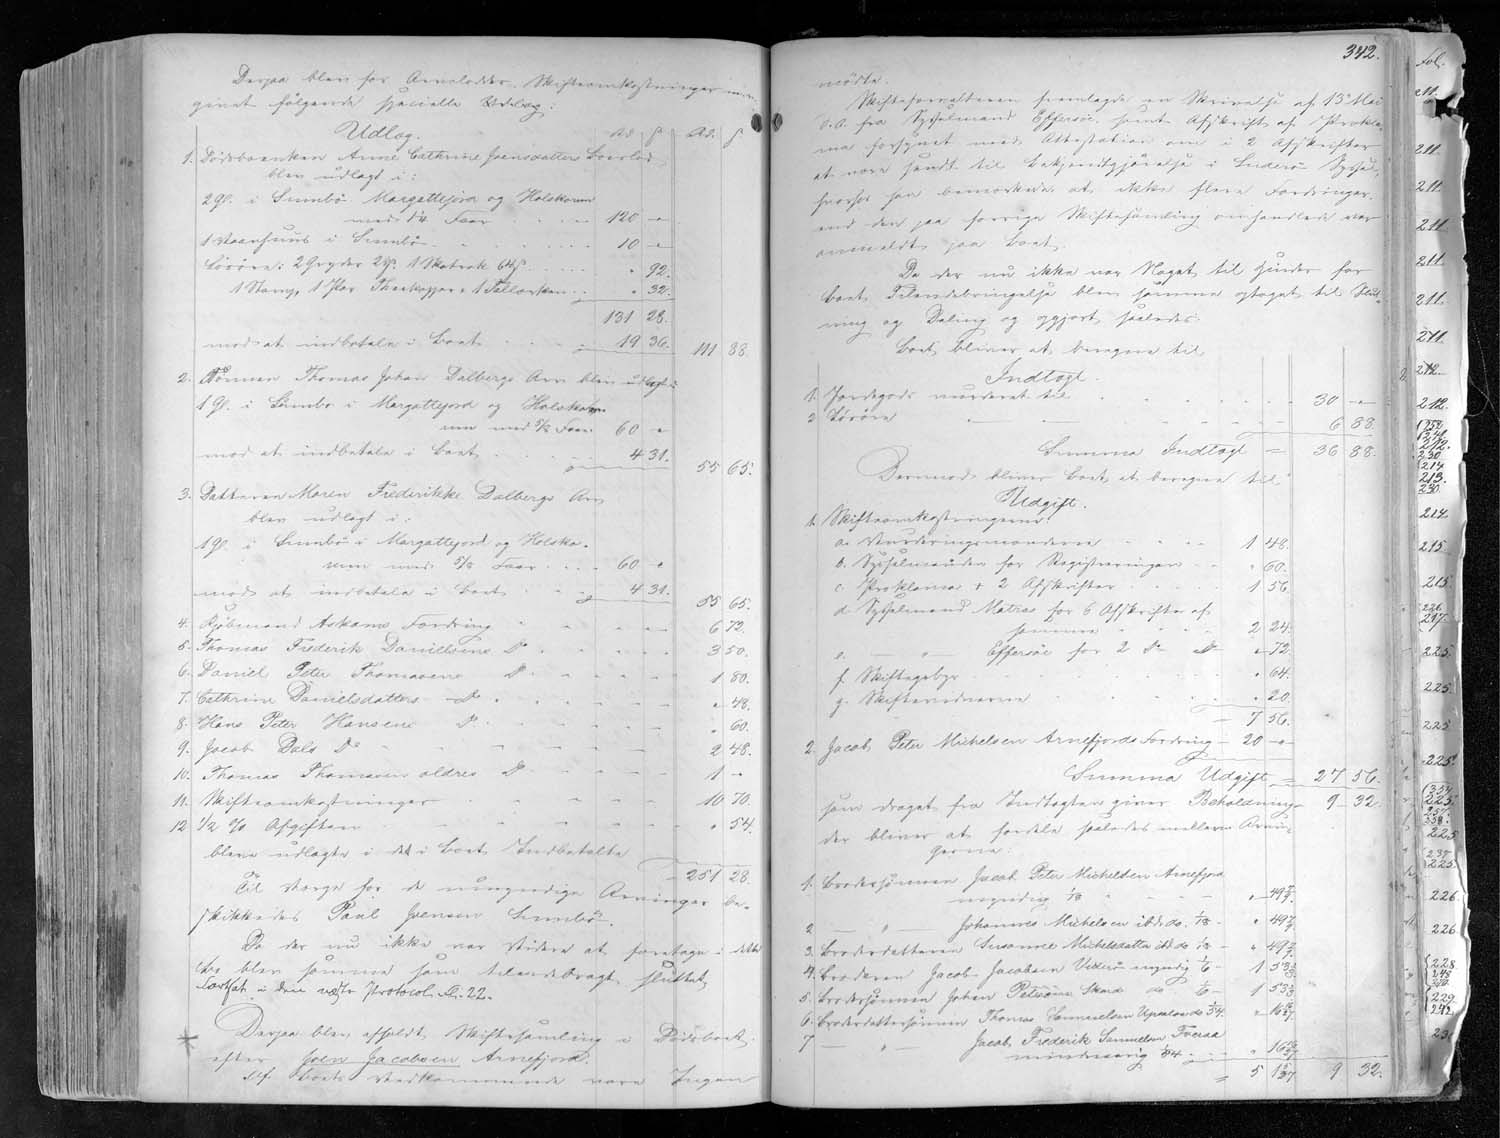 Derpaa blev for Arvelodder, Skifteomkostninger
følgende specielle Udlæg:
Udlæg.
1. Dødsboenken Anne Cathrine Joensdatters Boeslod
blev udlagt i:
2 Gl. i Sumbø Margattejord og Holskonum
med 1¼ Faar 120 "
1 Vaanhuus i Sumbø 10 "
Løsøre: 2 Gryder 2 . 1 64 " 92.
1 Stamp, 1 Par Theekopper & 1 Tallerken " 32.
131 28.
mod at indbetale i Boet 19 36. 111 88.
2. Sønnen Thomas Johan Dalbergs Arv blev udlagt i
1 Gl. i Sumbø i Margattejord og Holsko-
num med 5/8 Faar 60 "
mod at indbetale i Boet 4 31. 55 65.
3. Datteren Maren Frederikke Dalbergs Arv
blev udlagt i:
1 Gl. i Sumbø i Margattejord og Holsko-
num med 5/8 Faar 60 "
mod at indbetale i Boet 4 31. 55 65.
4. Kjøbmand Askams Fordring 6 72.
5. Thomas Frederik Danielsens Do 3 50.
6. Daniel Peter Thomasens Do 1 80.
7. Cathrine Danielsdatters Do " 48.
8. Hans Peter Hansens Do " 60.
9. Jacob Dals Do 2 48.
10. Thomas Thomasen ældres Do 1 "
11. Skifteomkostninger 10 70.
12 1/2 % Afgiften " 54.
blev udlagte i det i Boet Indbetalte
251 28.
Til Værge for de umyndige Arvinger be-
skikkedes Poul Joensen Sumbø.
Da der nu ikke var videre at foretage i dette
Bo blev samme som tilendebragt sluttet
fortsat i den næste Protocol fol. 22.
Derpaa blev afholdt Skiftesamling i Dødsboet
efter Joen Jacobsen Arnefjord.
Af Boets Vedkommende vare Ingen
342.
mødte.
Skifteforvalteren fremlagde en Skrivelse af 13de Mai
d.A. fra Sysselmand Effersøe samt Afskrift af Prokla-
ma forsynet med Attestation om i 2 Afskrifter
at være sendt til Bekjendtgjørelse i Suderø Syssel,
hvorhos han bemærkede at ikke flere Fordringer
end den paa forrige Skiftesamling omhandlede var
anmeldt paa Boet.
Da der nu ikke var Noget til Hinder for
Boets Tilendebringelse blev samme optaget til Slut-
ning og Deling og opgjort saaledes:
Boet bliver at beregne til
Indtægt.
1. Jordegods vurderet til 30 "
2 Løsøre 6 88.
Summa Indtægt = 36 88.
Derimod bliver Boet at beregne til
Udgift.
1. Skifteomkostningerne:
a. Vurderingsmændene 1 48.
b. Sysselmanden for Registreringen " 60.
c. Proklama + 2 Afskrifter 1 56
d. Sysselmand Matras for 6 Afskrifter af
samme 2 24.
e. — " — Effersøe for 2 Do Do " 72.
f. Skiftegebyr " 64.
g. Skiftevidnerne " 20.
7 56.
2. Jacob Peter Michelsen Arnefjords Fordring — 20 "
Summa Udgift = 27 56.
som draget fra Indtægten giver Beholdning 9 — 32.
der bliver at fordele saaledes mellem Arvin-
gerne:
1. Brodersønnen Jacob Peter Michelsen Arnefjord
myndig 1/18 " 49 7/9.
2 — " — Johannes Michelsen ibd. do. 1/18 " 49 7/9.
3. Broderdatteren Susanne Michelsdatter ibd. do 1/18 " 49 7/9.
4. Broderen Jacob Jacobsen Viderø myndig 1/6 1 53 1/3
5. Brodersønnen Johan Petersen Skaad do 1/6 1 53 1/3
6. Broderdattersønnen Thomas Samuelsen 1/54.
7 — " — Jacob Frederik Samuelsen Fveraa
mindreaarig 1/54
= 5 9 32.
Fol.
211.
211.
211.
211.
211.
211.
211.
212.
212.
212.
230
214
213.
230.
214.
215.
215.
226.
217.
225.
225.
225.
225.
334.
225.
338.
225
225.
226.
226.
228.
229.
242.